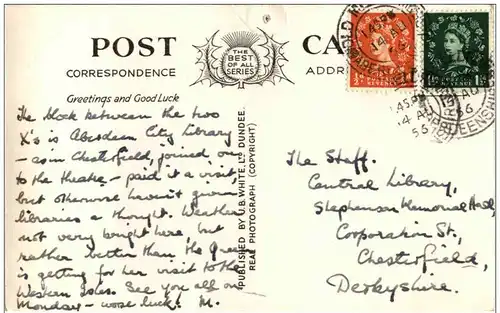 POST
CORRESPONDENCE
THE
BEST
OF ALL
SERIES
ADDRE
Greetings and Good Luck
The block between the two
X's is Aberdeen City Library
- as in Chesterfield, joined on
to the theatre - paid it a visit,
but otherwise haven't given
libraries a thought. Weather
not very bright here but
rather better than the Queen
is getting for her visit to the
Western Isles. See you all on
Monday - worse luck. M.
PUBLISHED BY J.B. WHITE, LTD DUNDEE
REAL PHOTOGRAPH (COPYRIGHT)
1.45PM
14 AU
56
The Staff.
Central Library,
Stephenson Memorial Hall
Corporation St.,
Chesterfield,
Derbyshire.